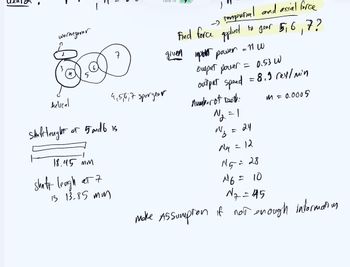 → tangential and axial force
Find force applied to gear 5, 6, 7?
given
power = 11 W
output power = 0.53 W
output speed = 8.9 rev/min
number of teeth: m = 0.0005
N2 = 1
N3 = 24
N4 = 12
N5 = 28
N6 = 10
N7 = 45
wormgear
2
3
4
5
6
7
helical
4,5,6,7 spur gear
shaft lenght at 5 and 6 is
18.45 mm
shaft length at 7
is 13.85 mm
make assumption if not enough information